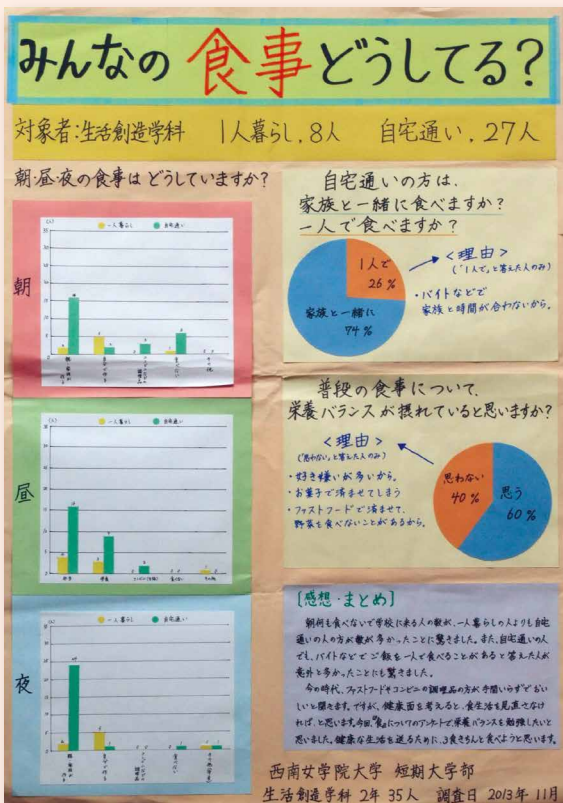 みんなの食事どうしてる?
対象者:生活創造学科 1人暮らし,8人 自宅通い,27人
朝・昼・夜の食事はどうしていますか?
朝
一人暮らし 自宅通い
昼
一人暮らし 自宅通い
弁当 学食
夜
一人暮らし 自宅通い
自宅通いの方は、
家族と一緒に食べますか?
一人で食べますか?
1人で
26%
家族と一緒に
74%
<理由>
(「1人で」と答えた人のみ)
・バイトなどで
家族と時間が合わないから。
普段の食事について、
栄養バランスが摂れていると思いますか?
<理由>
(「思わない」と答えた人のみ)
・好き嫌いが多いから。
・お菓子で済ませてしまう
・ファストフードで済ませて、
野菜を食べないことがあるから。
思わない
40%
思う
60%
[感想・まとめ]
朝何も食べないで学校に来る人の数が、一人暮らしの人よりも自宅
通いの人の方が数が多かったことに驚きました。また、自宅通いの人
でも、バイトなどでご飯を一人で食べることがあると答えた人が
意外と多かったことにも驚きました。
今の時代、ファストフードやコンビニの調理品の方が手間いらずでおい
しいと聞きます。ですが、健康面を考えると、食生活を見直さなけ
れば、と思います。今回、『食』についてのアンケートで、栄養バランスを勉強したいと
思いました。健康な生活を送るために、3食きちんと食べようと思います。
西南女学院大学 短期大学部
生活創造学科 2年 35人 調査日 2013年 11月